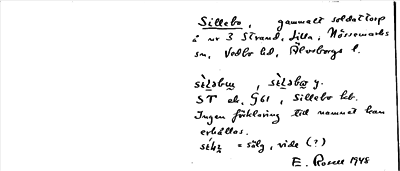 Sillebo, gammalt soldattorp
å nr 3 Strand, Lilla, Nössemarks
sn, Vedbo hd, Älvsborgs l.
ST ek. G61, Sillebo
Ingen förklaring till namnet kan
erhållas.
= sälg, vide (?)
E. Rosell 1948